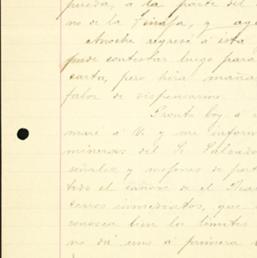 pueda, a la parte del
no de la Tinaja, y aye
Anoche regresé á esta
pude contestar luego para
carta, pero hira mañana
fabor de dispensarme.
Pronto boy á
maré á V. y me inform
mineras del Sr. Salvado
señales y mojones de part
todo el cañon de el
cerros inmediatos, que
conosca bien los limites
no dá uno á primera